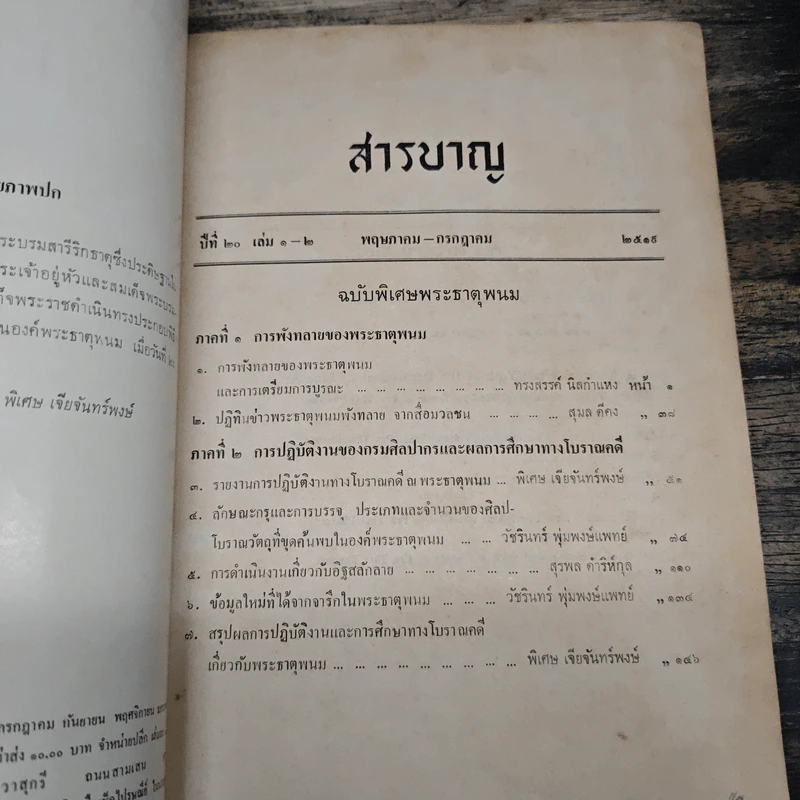 ยภาพปก
ระบรมสารีริกธาตุซึ่งประดิษฐานใน
ระเจ้าอยู่หัวและสมเด็จพระบรม
ด็จพระราชดำเนินทรงประกอบพิธี
นองค์พระธาตุพนม เมื่อวันที่ ๒๑
พิเศษ เจียจันทร์พงษ์
กรกฎาคม กันยายน พฤศจิกายน
ค่าส่ง ๑๐.๐๐ บาท จำหน่ายปลีก
วาสุกรี ถนนสามเสน
สารบาญ
ปีที่ ๒๐ เล่ม ๑ – ๒ พฤษภาคม – กรกฎาคม ๒๕๑๙
ฉบับพิเศษพระธาตุพนม
ภาคที่ ๑ การพังทลายของพระธาตุพนม
๑. การพังทลายของพระธาตุพนม
และการเตรียมการบูรณะ ... ... ... ... ... ... ... ... ทรงสรรค์ นิลกำแหง หน้า ๑
๒. ปฏิทินข่าวพระธาตุพนมพังทลาย จากสื่อมวลชน ... ... ... ... สุมล ดีคง ,, ๓๘
ภาคที่ ๒ การปฏิบัติงานของกรมศิลปากรและผลการศึกษาทางโบราณคดี
๓. รายงานการปฏิบัติงานทางโบราณคดี ณ พระธาตุพนม ... พิเศษ เจียจันทร์พงษ์ ,, ๕๑
๔. ลักษณะกรุและการบรรจุ ประเภทและจำนวนของศิลป-
โบราณวัตถุที่ขุดค้นพบในองค์พระธาตุพนม ... ... วัชรินทร์ พุ่มพงษ์แพทย์ ,, ๗๔
๕. การดำเนินงานเกี่ยวกับอิฐสลักลาย ... ... ... ... ... ... สุรพล ดำริห์กุล ,, ๑๑๐
๖. ข้อมูลใหม่ที่ได้จากจารึกในพระธาตุพนม ... ... ... วัชรินทร์ พุ่มพงษ์แพทย์ ,, ๑๓๔
๗. สรุปผลการปฏิบัติงานและการศึกษาทางโบราณคดี
เกี่ยวกับพระธาตุพนม ... ... ... ... ... ... ... ... ... พิเศษ เจียจันทร์พงษ์ ,, ๑๔๖